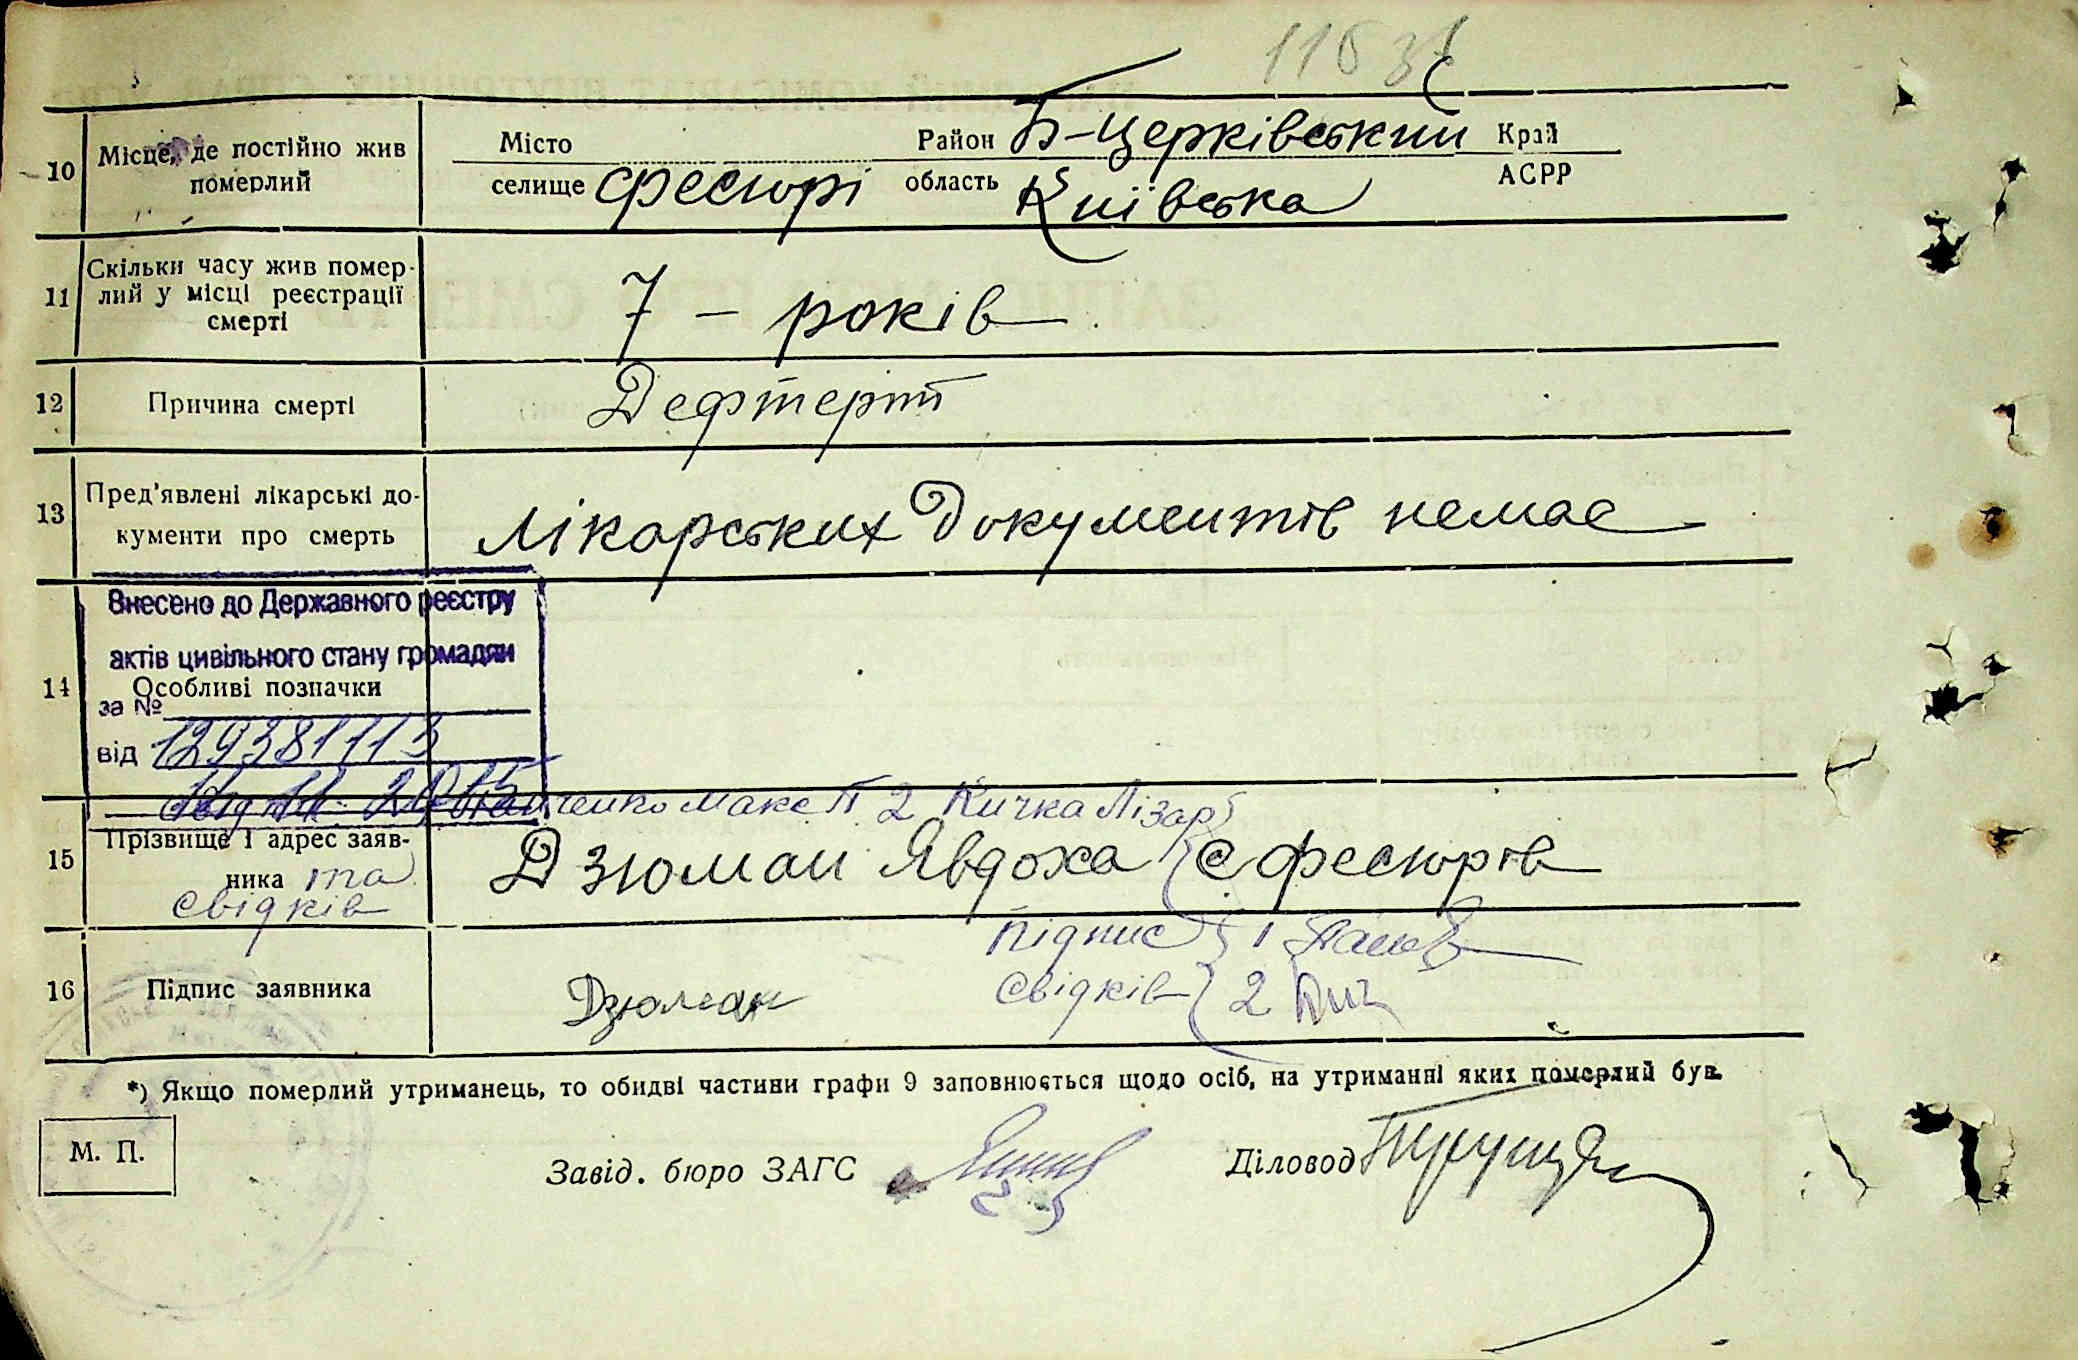 1163
10 Місце, де постійно жив померлий
Місто Район Б-Церківський Край
селище Фесюрі область Київська АСРР
11 Скільки часу жив помер-
лий у місці реєстрації
смерті
7 – років
12 Причина смерті Дефтеріт
13 Пред'явлені лікарські до-
кументи про смерть
Лікарських документів немає
Внесено до Державного реєстру
актів цивільного стану громадян
14 Особливі позначки
за №
від 129381113
11 2015
макс П 2 Кичка Лізар
15 Прізвище і адрес заяв-
ника та
свідків
Дзюман Явдоха с Фесюрів
Підпис 1
свідків 2
16 Підпис заявника Дзюман
*) Якщо померлий утриманець, то обидві частини графи 9 заповнюється щодо осіб, на утриманні яких померлий був.
М. П.
Завід. бюро ЗАГС
Діловод